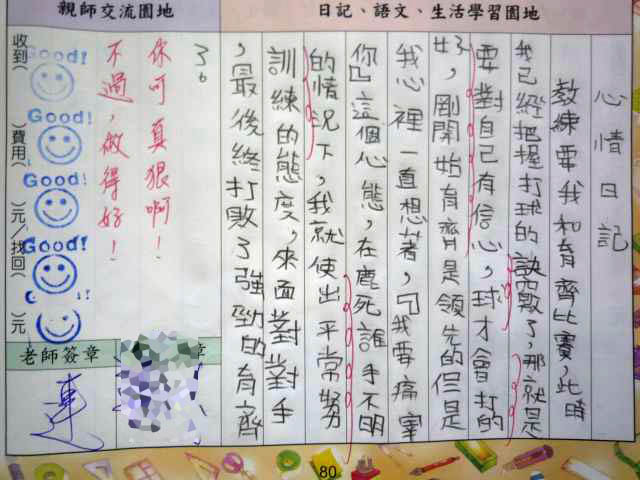 日記、語文、生活學習園地
心情日記
教練要我和育齊比賽，此時
我已經把握打球的訣竅了，那就是
要對自己有信心，球才會打的
好，剛開始育齊是領先的但是
我心裡一直想著，「我要痛宰
你」這個心態，在鹿死誰手不明
的情況下，我就使出平常努
訓練的態度，來面對對手
，最後終打敗了強勁的育齊
了。
親師交流園地
你可真狠啊！
不過，做得好！
收到(
)費用(
)元/找回(
)元
Good!
Good!
Good!
Good!
老師簽章
章
連
80